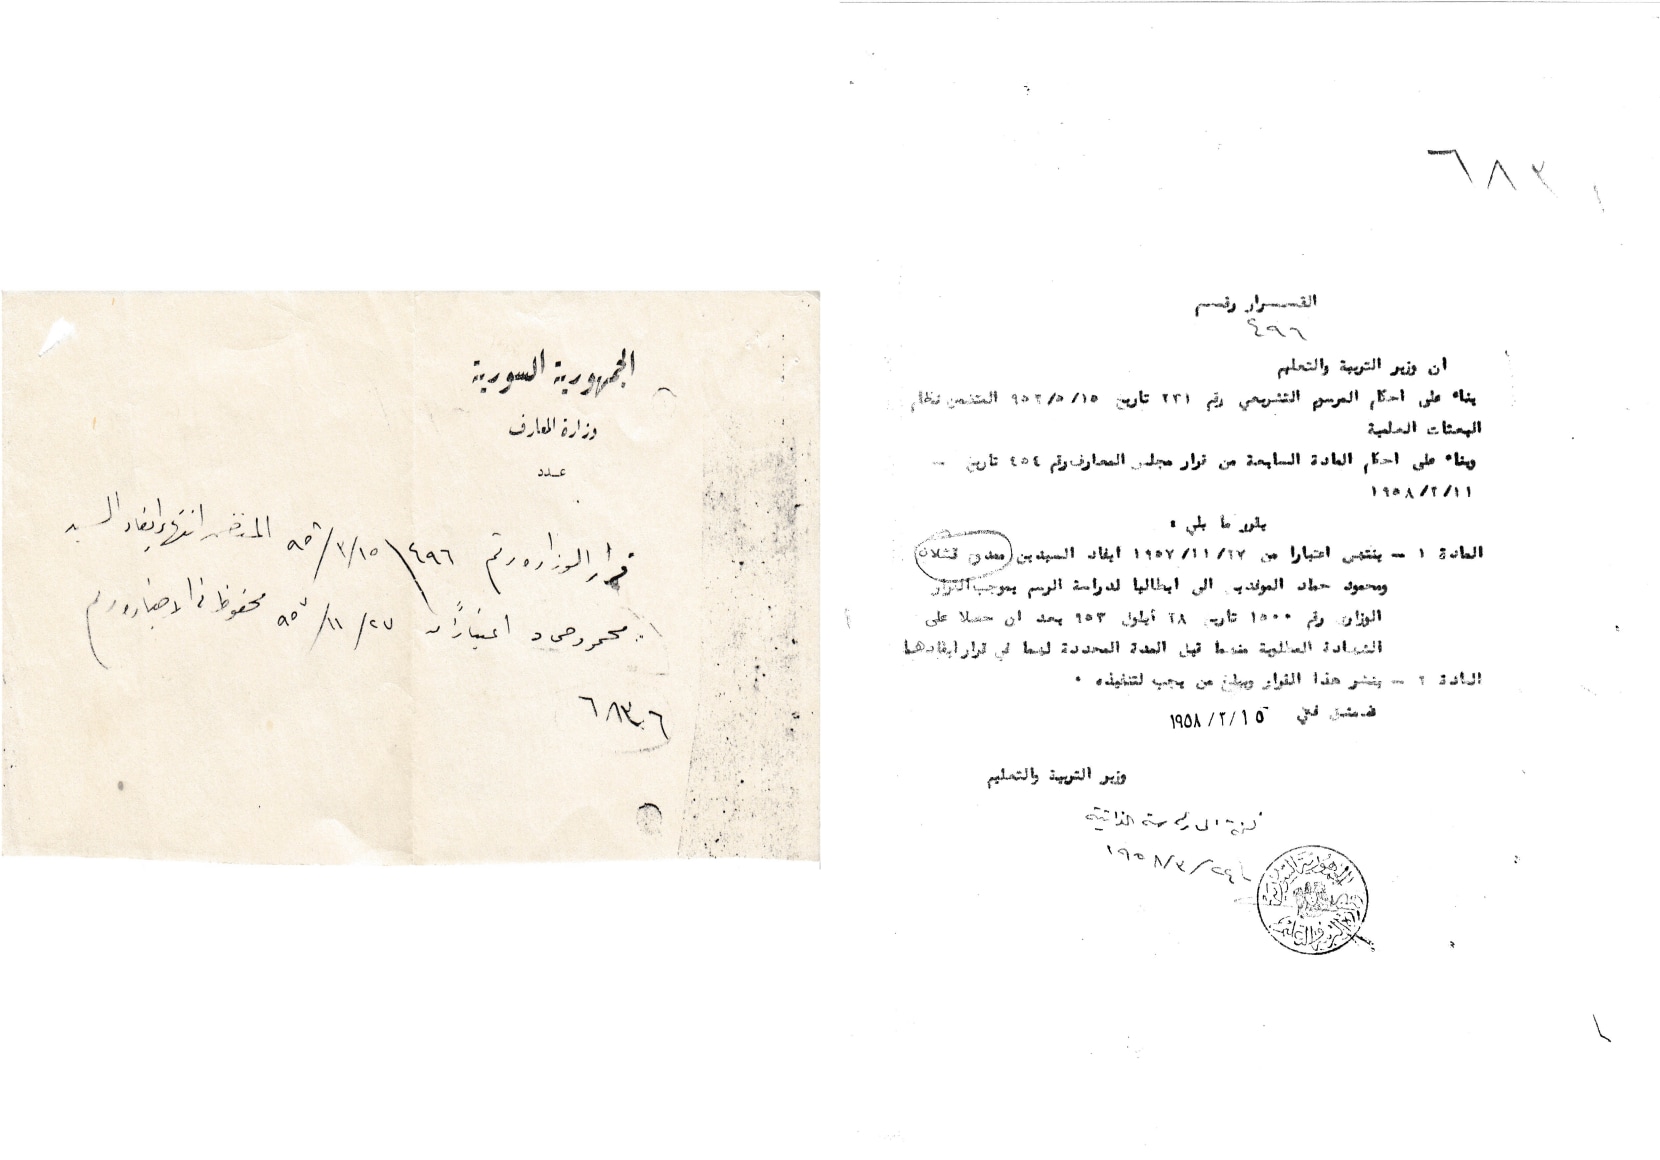 الجمهورية السورية
وزارة المعارف
عدد
قرار الوزارة رقم ٤٩٦ \ ١٥/٢/٩٥٨ المتضمن انتهاء ايفاد السيد
محمود حماد اعتباراً من ٢٧/١١/٩٥٧ محفوظ في الاضبارة رقم
٦٨٣٠٦
٦٨٣
القـــرار رقـــم
٤٩٦
ان وزير التربية والتعليم
بناء على احكام المرسوم التشريعي رقم ٢٣١ تاريخ ١٥/٥/٩٥٢ المتضمن نظام
البعثات العلمية
وبناء على احكام المادة السابعة من قرار مجلس المعارف رقم ٤٥٤ تاريخ –
١٩٥٨/٢/١١
يقرر ما يلي :
المادة ١ – ينتهي اعتبارا من ١٩٥٧/١١/٢٧ ايفاد السيدين معدي قشلان
ومحمود حماد الموفدين الى ايطاليا لدراسة الرسم بموجب القرار
الوزاري رقم ١٥٠٠ تاريخ ٢٨ أيلول ٩٥٣ بعد ان حصلا على
الشهادة المطلوبة منهما قبل المدة المحددة لهما في قرار ايفادهما
المادة ٢ – ينشر هذا القرار ويبلغ من يجب لتنفيذه ٠
دمشق في ١٩٥٨/٢/١٥
وزير التربية والتعليم
١٩٥٨/٣/٢٤